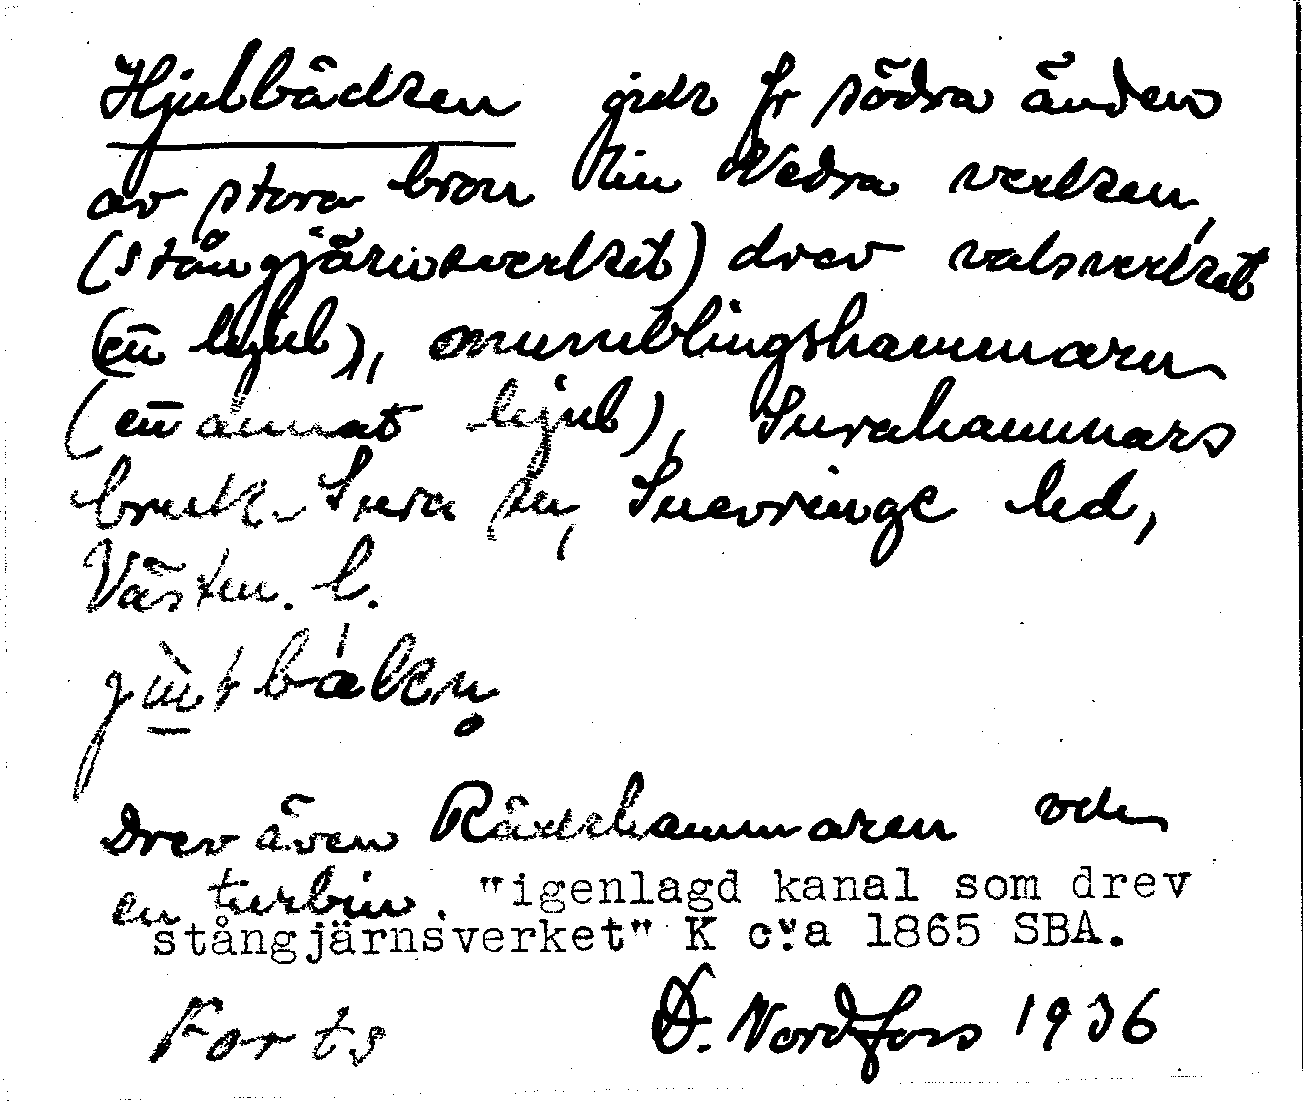 Hjulbäcken gick fr södra änden
av stora bron till Nedra verken,
(stångjärnsverket) drev valsverket
(ett hjul), mumblingshammaren
(ett annat hjul), Surahammars
bruk Sura sn, Snevringe hd,
Västm. l.
Drev även Räckhammaren och
en turbin. "igenlagd kanal som drev
stångjärnsverket" K c:a 1865 SBA.
Forts D. Nordfors 1936